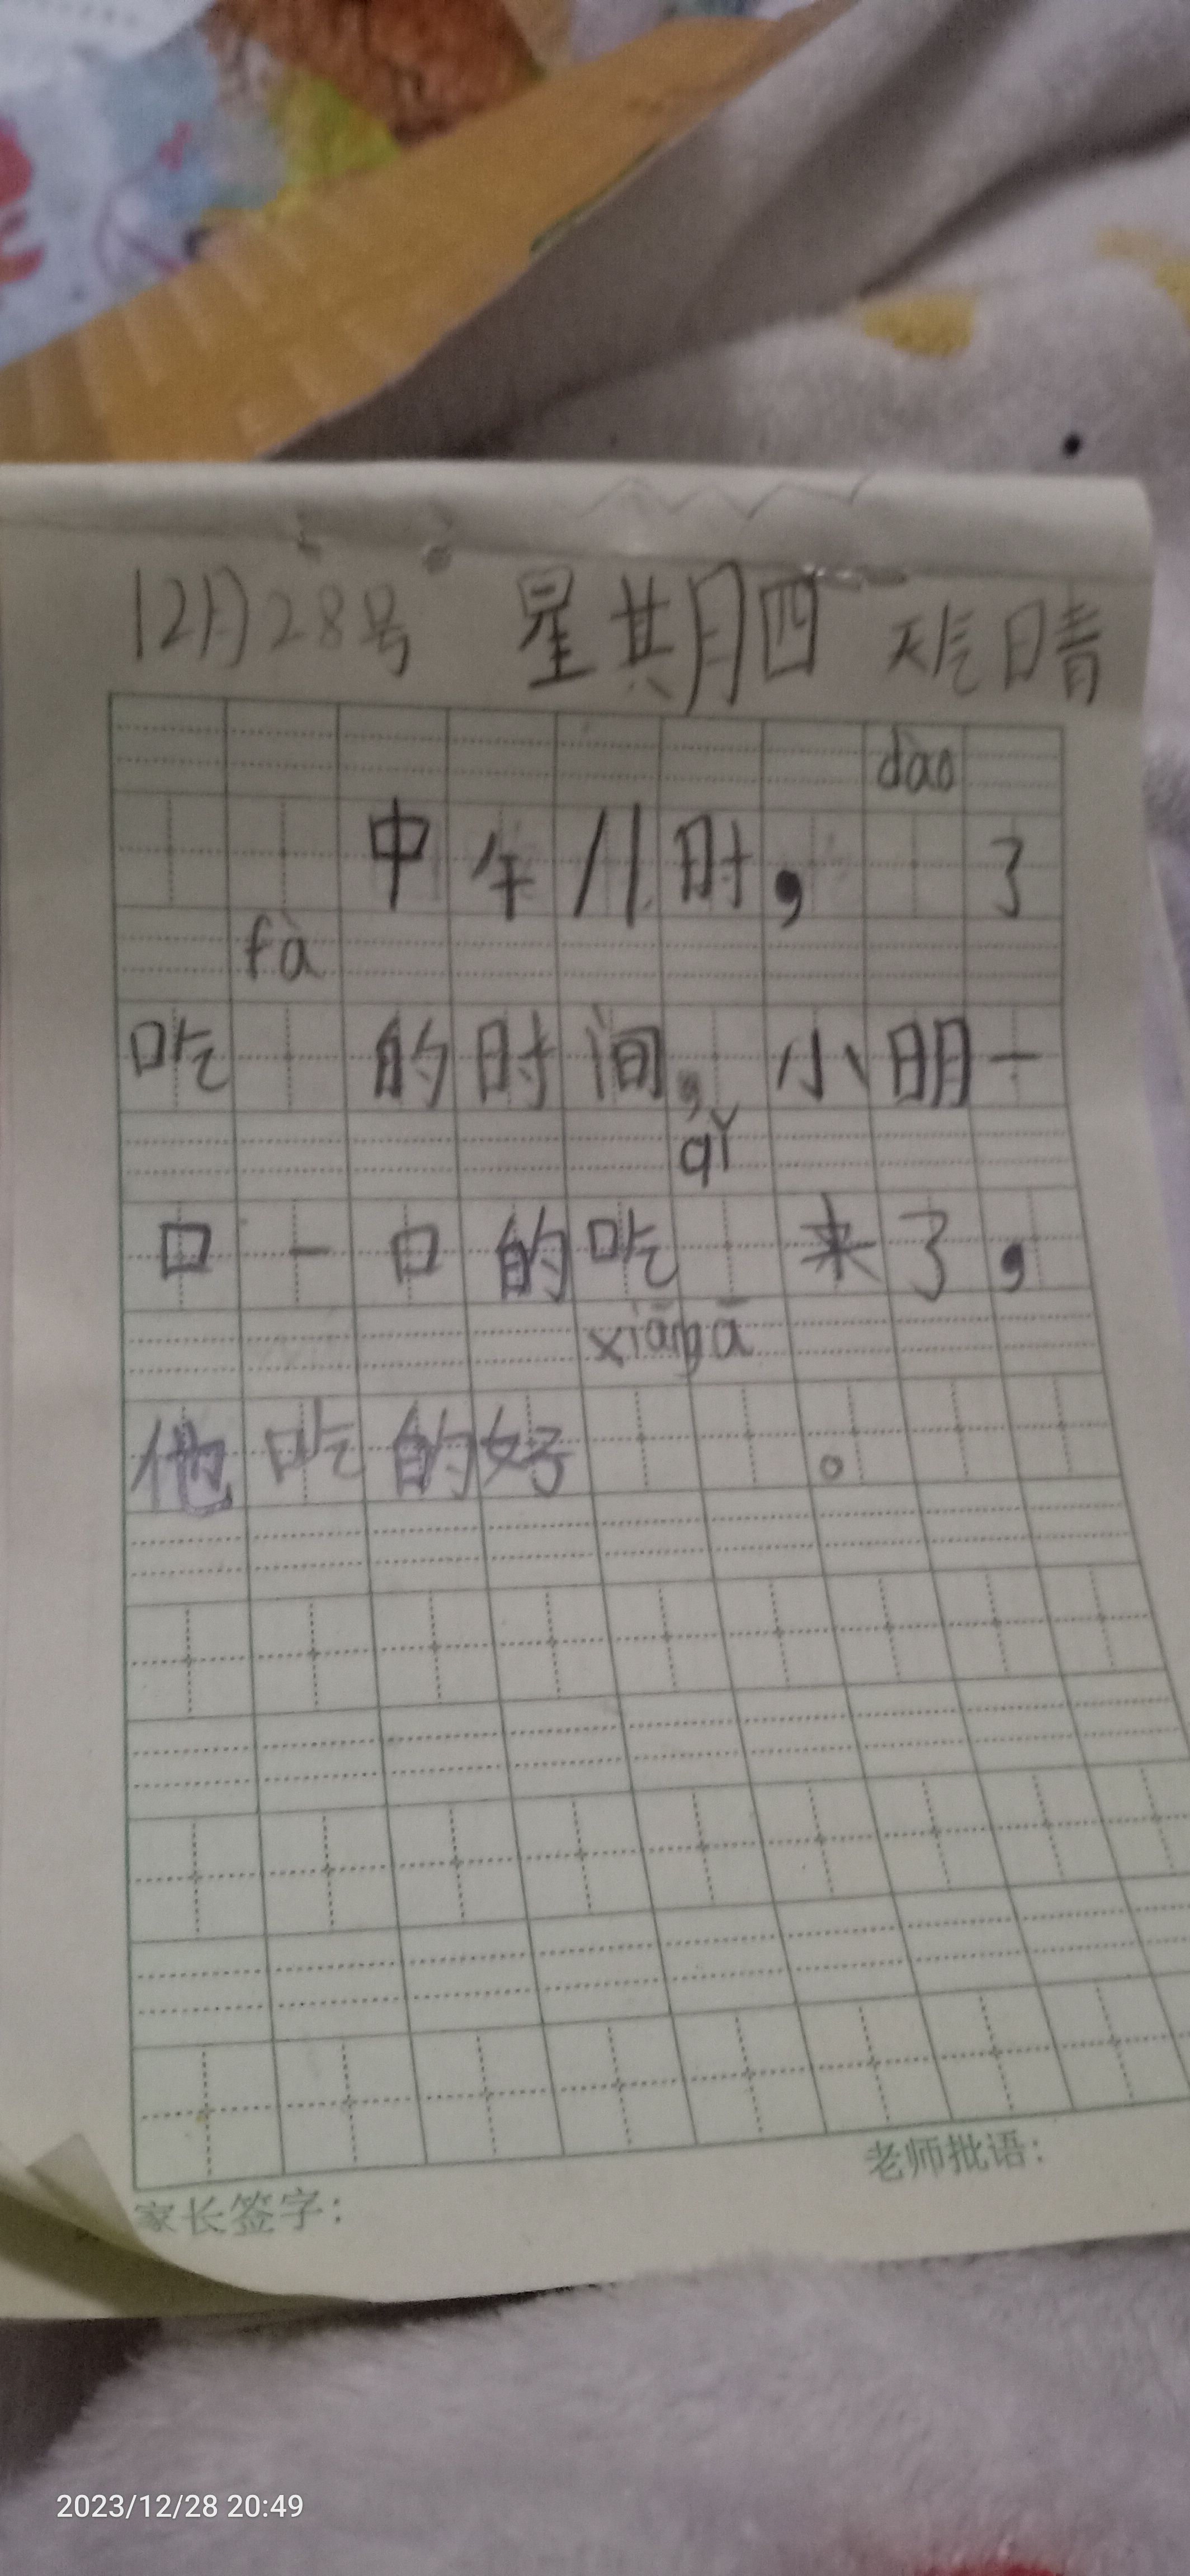 12月28号 星其月四 天气日青
dào
中午11时， 了
fà
吃 的时间，小明一
qǐ
口一口的吃 来了，
xiāng ā
他吃的好 。
老师批语：
家长签字：
2023/12/28 20:49